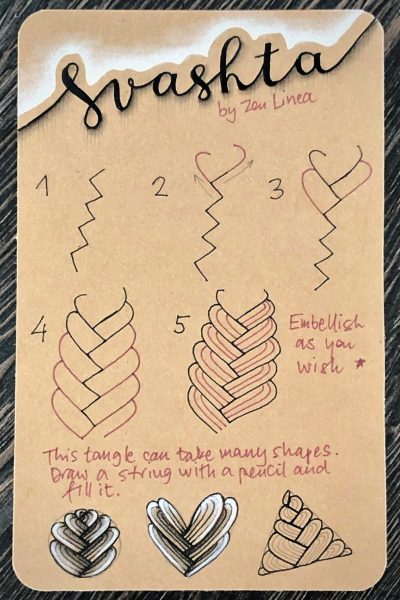 Svashta
by Zen Linea
1 2 3
4 5
Embellish
as you
wish
This tangle can take many shapes.
Draw a string with a pencil and
fill it.